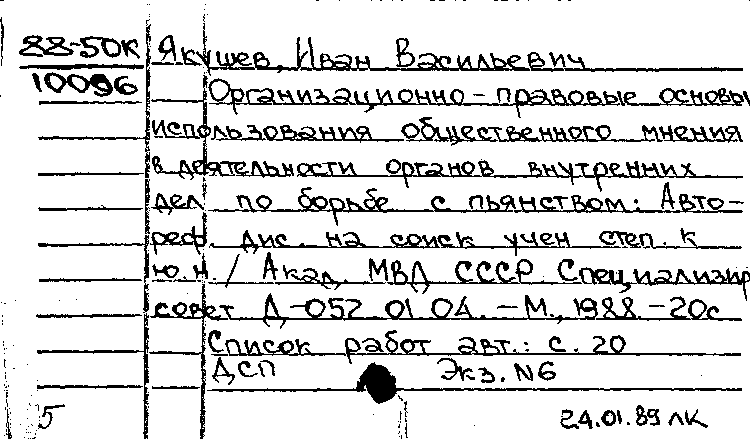 88-50к Якушев, Иван Васильевич
10096 Организационно-правовые основы
использования общественного мнения
в деятельности органов внутренних
дел по борьбе с пьянством: Авто-
реф. дис. на соиск учен степ. к
ю.н. / Акад. МВД СССР. Специализир
совет Д-052 01 04. - М., 1988. - 20с
Список работ авт.: с. 20
ДСП Экз. N6
5 24.01.89 ЛК